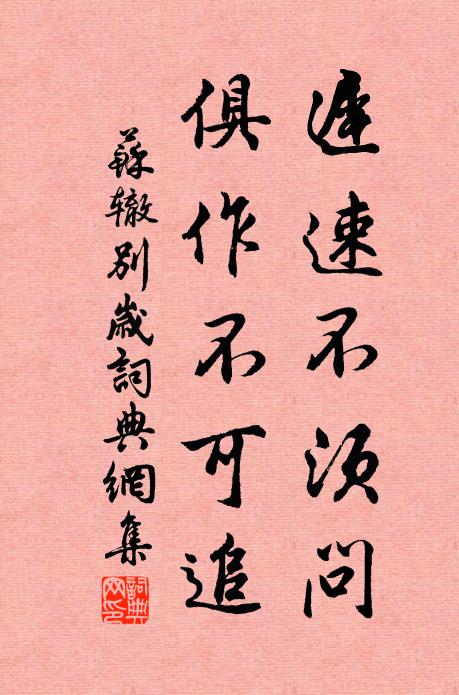 遲速不須問
俱作不可追
蘇轍別歲詞典網集
詞典網印